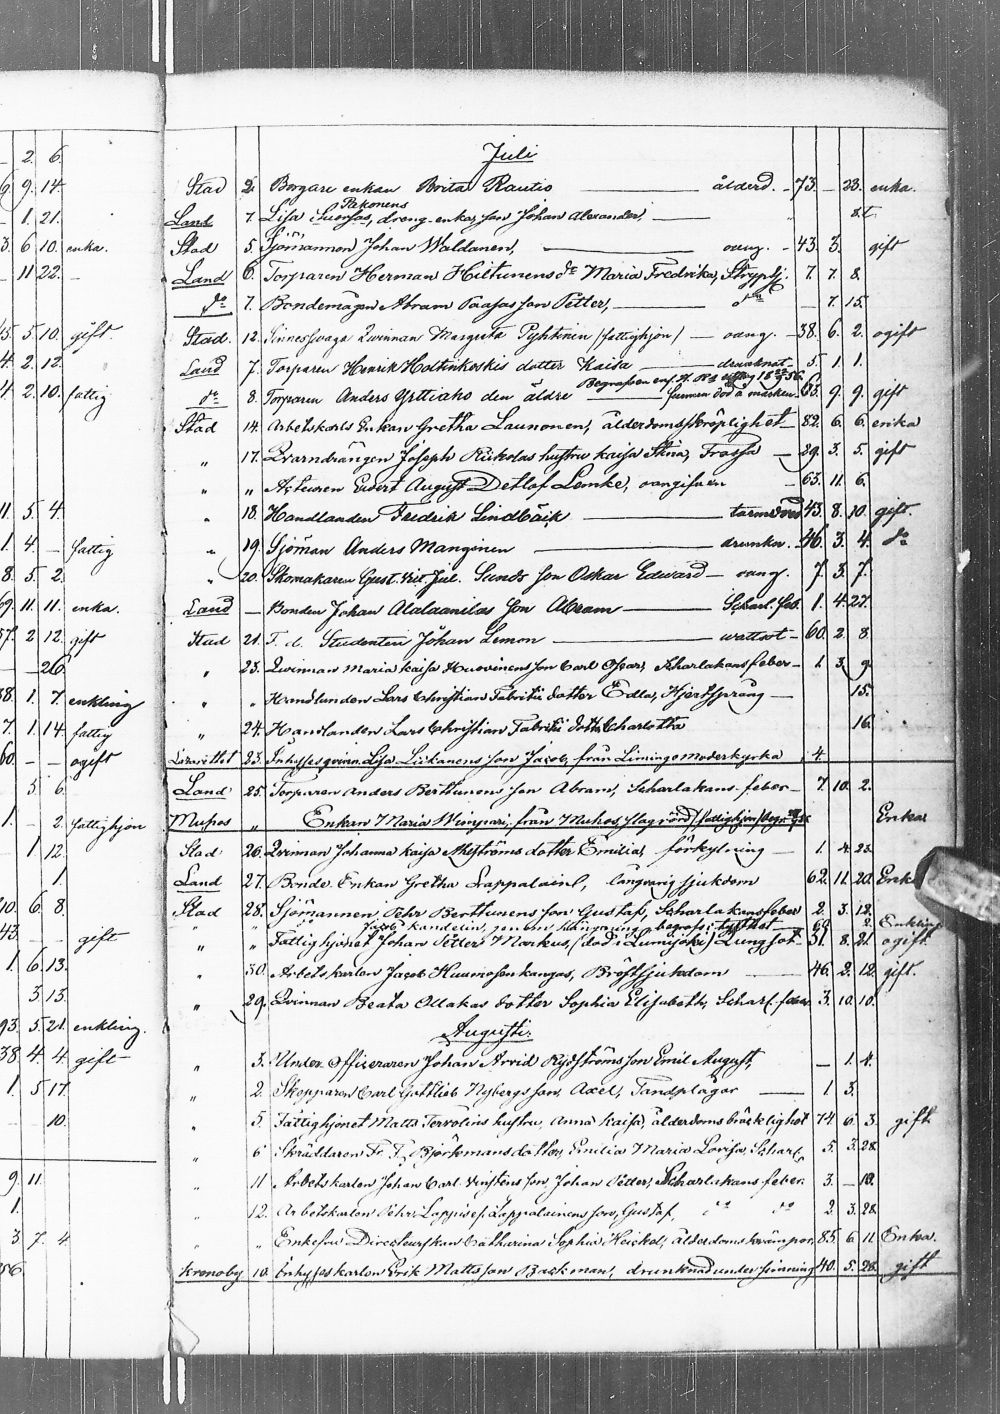 2. 6.
9. 14.
1. 21.
3. 6. 10. enka.
11. 22.
5. 10. gift.
4. 2. 12.
4. 2. 10. fattig
11. 5. 4.
1. 4. — fattig
8. 5. 2.
69. 11. 11. enka.
57. 2. 12. gift
— — 26.
38. 1. 7. enkling
7. 1. 14. fattig
60. — — ogift
5. 6.
1. — 2. fattighjon
1. 12.
1.
10. 6. 8.
43. — — gift
1. 6. 13.
3. 13.
93. 5. 21. enkling.
38. 4. 4. gift
1. 5. 17.
10.
9. 11.
1.
3. 7. 4.
Juli
Stad 2. Borgare enkan Brita Rautio — ålderd. — 73. — 23. enka.
Land 7. Lisa dreng enkas son Johan Alexander, —
Stad 5. Sjömannen Johan Waldanen, — oang. — 43. 3. gift
Land 6. Torparen Herman Hiltunens dr Maria Fredrika, Strypsj. 7. 7. 8.
do 7. Bondemågen Abram Paasos son Petter, — do — 7. 15.
Stad. 12. Sinnessvaga Qvinnan Margreta Pyhtinen /fattighjon/ — oang. — 38. 6. 2. ogift
Land 7. Torparen Henrik Holtinkoskis dotter Kaisa — drunknat — 5. 1. 1.
do 8. Torparen Anders Yrttiaho den äldre — funnen död å marken. 63. 9. 9. gift
Stad 14. Arbetskarls Enkan Gretha Launonen, ålderdomsskröplighet — 82. 6. 6. enka
„ 17. Qvarndrängen Joseph hustru Kaisa Stina, Frossa — 29. 3. 5. gift
„ „ Acteuren Evert August Detlof Lemke, oangifven — 65. 11. 6.
„ 18. Handlanden Fredrik Lindbäck — 43. 8. 10. gift.
„ 19. Sjöman Anders Manginen — drunkn. 46. 3. 4. do
„ 20. Skomakaren Gust. Wil. Jul. Sunds son Oskar Edward — oang. 7. 3. 7.
Land — Bonden Johan Alalaanilas son Abram — Scharl. feb. 1. 4. 27.
Stad 21. F. d. Studenten Johan Limon — wattsot — 60. 2. 8.
„ 23. Qwinnan Maria Kaisa Huovinens son Carl Oscar, Scharlakansfeber — 1. 3. 9.
„ „ Handlanden Lars Christian Fabritii dotter Edla, Hjertsprång — 15.
„ 24. Handlanden Lars Christian Fabritii dotter Charlotta 16.
Lazarettet 23. Inhysesqvinn. Lisa Liikanens son Jacob, från Limingo moderkyrka 4.
Land 25. Torparen Anders Berttunens son Abram, Scharlakans feber — 7. 10. 2.
Muhos „ Enkan Maria Wimpari, från Muhos, /fattighjon/ Enka
Stad 26. Qvinnan Johanna Kaisa Ahlströms dotter Emilia, förkylning — 1. 4. 23.
Land 27. Bonde Enkan Gretha Lappalainen, långvarig sjukdom 62. 11. 20. Enka
Stad 28. Sjömannen, Pehr Berttunens son Gustaf, Scharlakansfeber 2. 3. 12.
Jacob Kandelin, 60. 2. Enkling
„ „ Fattighjonet Johan Petter Markus, (död i Lumijoki) Lungsot 31. 8. 21. ogift
„ 30. Arbetskarlen Jacob Huumosenkangas, Bröstsjukdom — 46. 2. 12. gift.
„ 29. Qvinnan Beata Ollakas dotter Sophia Elisabeth, Scharl. feber 3. 10. 10.
Augusti.
„ 3. Under Officeraren Johan Arvid Rydströms son Emil August, — 1. 4.
„ 2. Skepparen Carl Gottlieb Nybergs son, Axel, Tandplågor — 1 3.
„ 5. Fattighjonet Matts Tervolins hustru, Anna Kaisa, ålderdomsbräcklighet 74 6. 3. gift
„ 6 Skräddaren Fr. F. Björkmans dotter, Emilia Maria Lovisa, Scharl. 5. 3. 28.
„ 11 Arbetskarlen Johan Carl son, Johan Petter, Scharlakans feber. 3. — 19.
„ 12. Arbetskarlen Pehr Lappis el. Lappalainens son, Gustaf, do do 2. 3. 28.
„ „ Enkefru Catharina Sophia Heickel, ålderdomskrämpor 85. 6. 11. Enka.
Kronoby 10. Inhyseskarlen Erik Mattsson Backman, drunknad under simning 40. 5. 28. gift